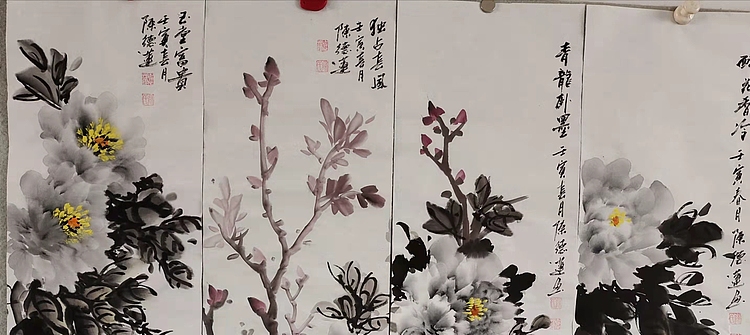 玉堂富貴
壬寅春月
陳德蓮
独占春風
壬寅春月
陳德蓮
青龍卧墨 壬寅春月陳德蓮画
香冷 壬寅春月陳德蓮画